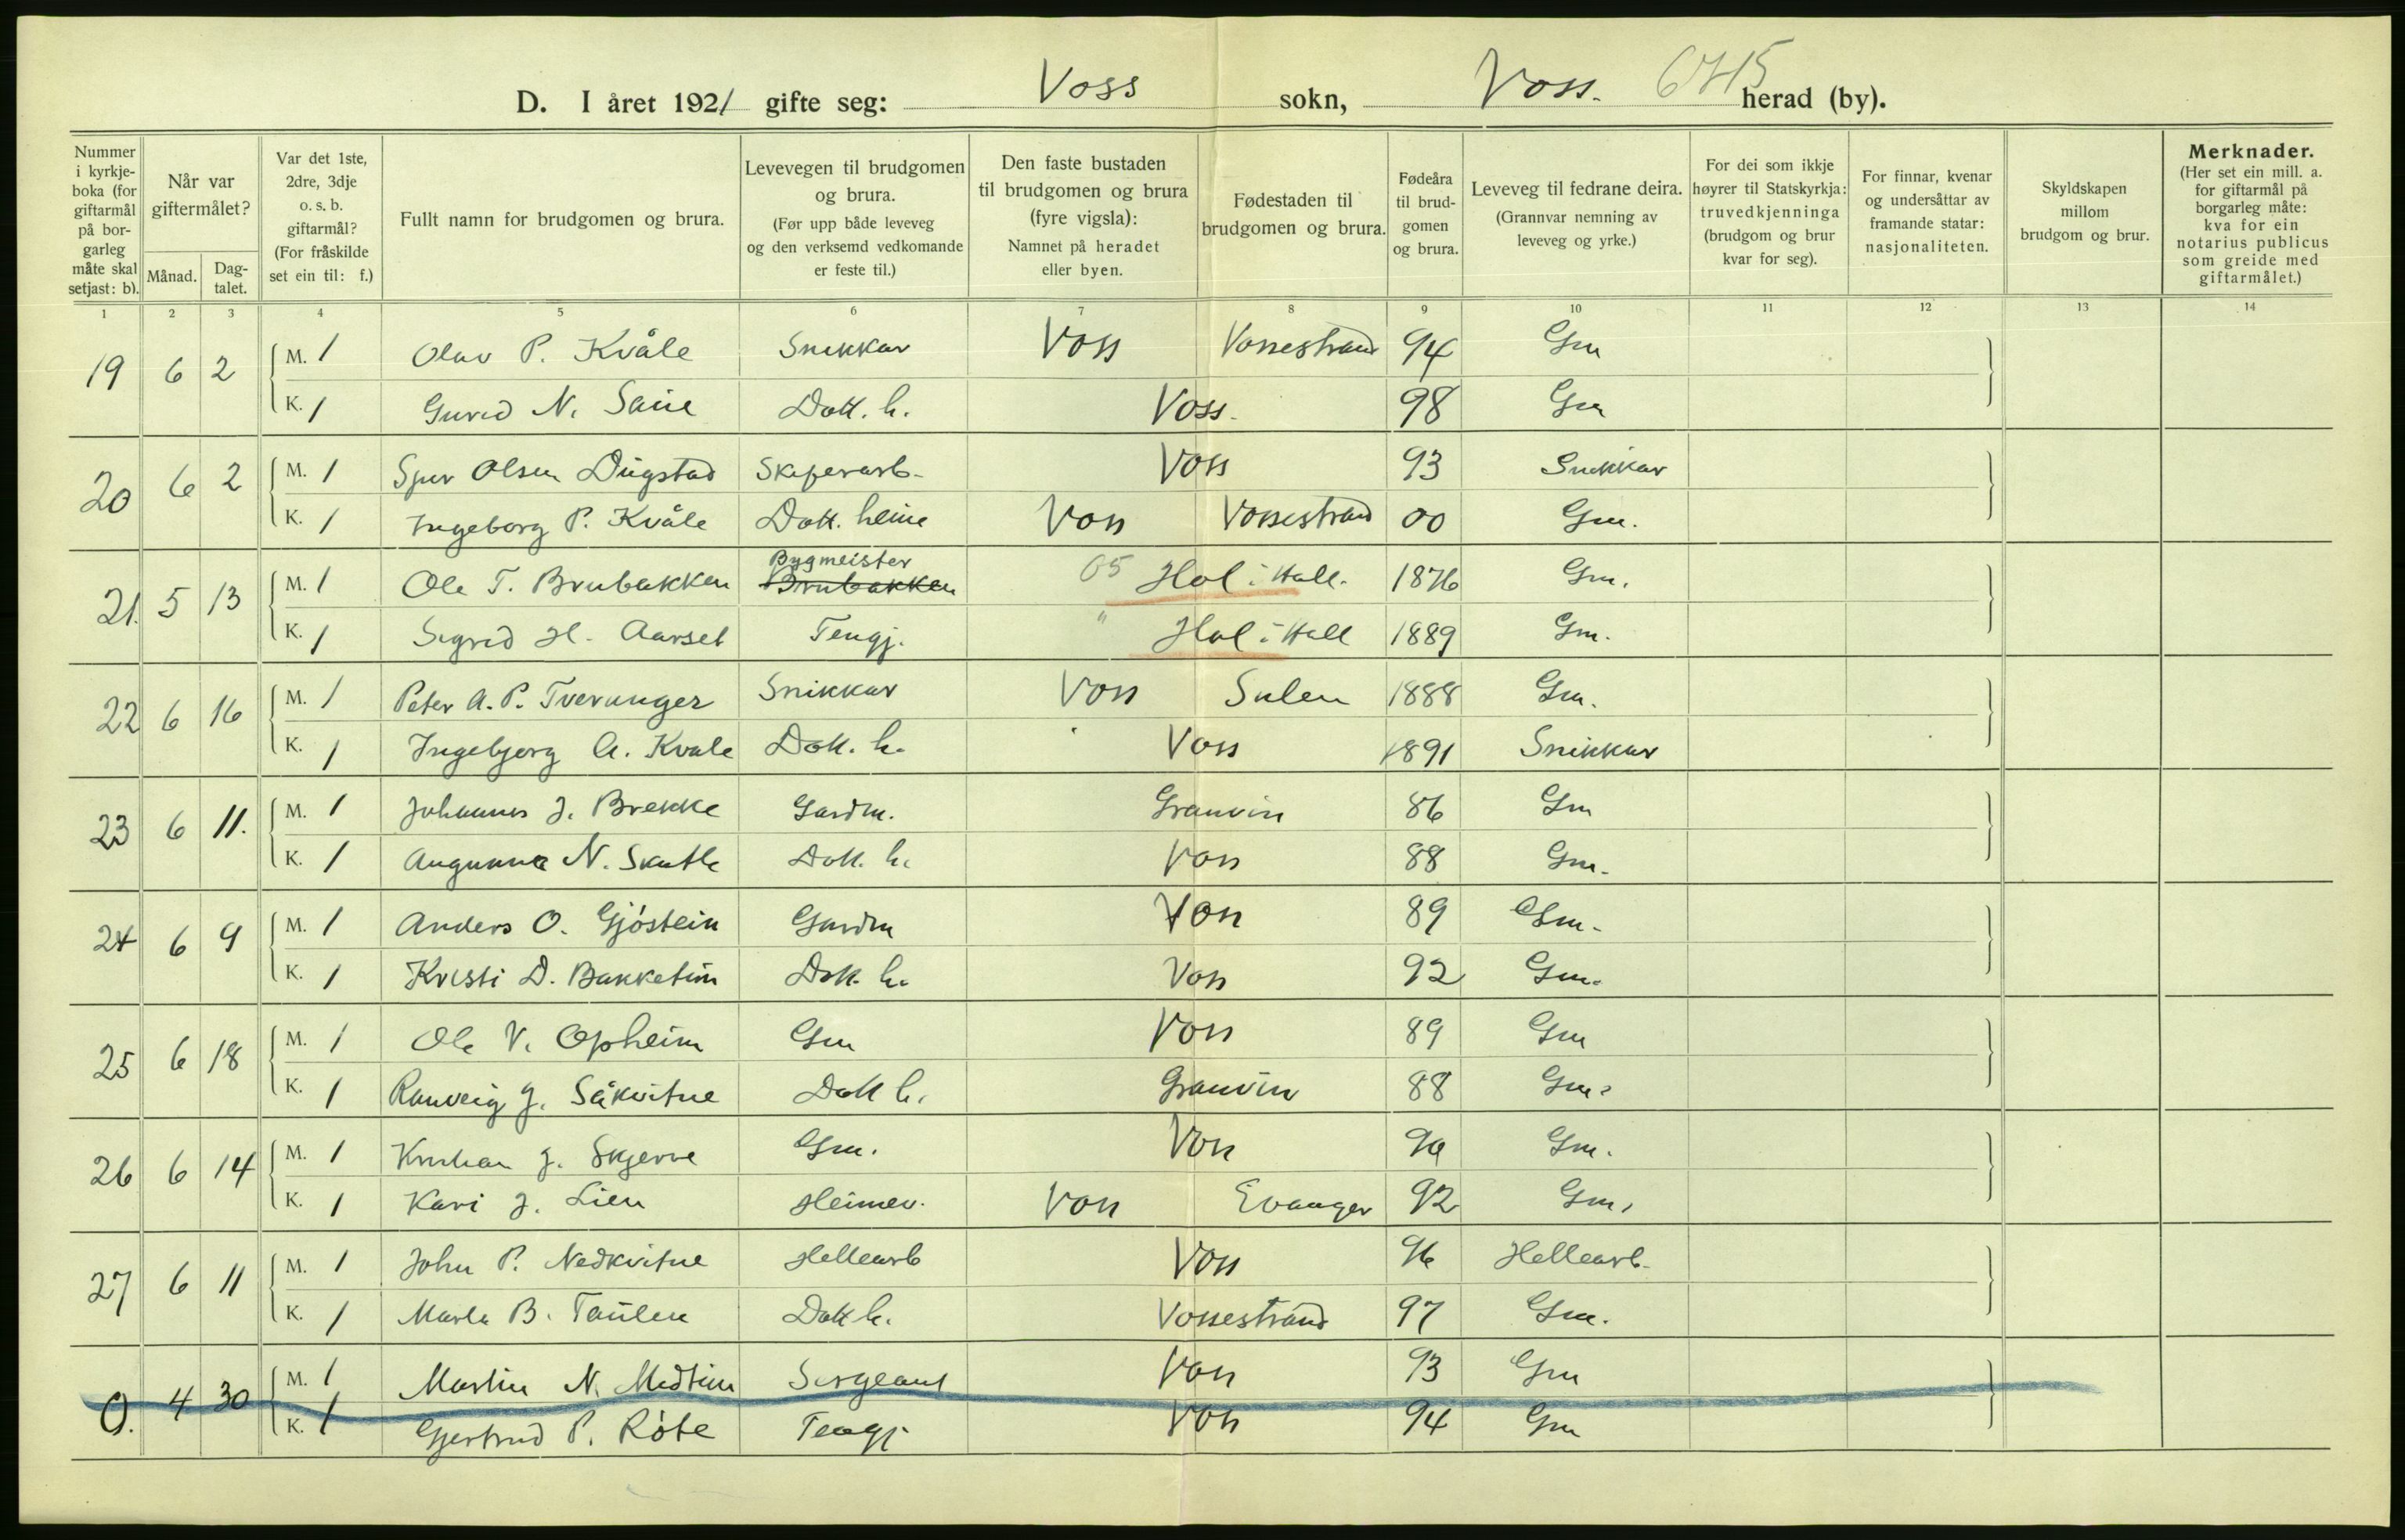 D. I året 1921 gifte seg: Voss sokn, Voss. 6715 herad (by).
Nummer i kyrkjeboka (for giftarmål på borgarleg måte skal setjast: b).
Når var giftermålet?
Månad.
Dagtalet.
Var det 1ste, 2dre, 3dje o. s. b. giftarmål? (For fråskilde set ein til: f.)
Fullt namn for brudgomen og brura.
Levevegen til brudgomen og brura. (Før upp både leveveg og den verksemd vedkomande er feste til.)
Den faste bustaden til brudgomen og brura (fyre vigsla): Namnet på heradet eller byen.
Fødestaden til brudgomen og brura.
Fødeåra til brudgomen og brura.
Leveveg til fedrane deira. (Grannvar nemning av leveveg og yrke.)
For dei som ikkje høyrer til Statskyrkja: truvedkjenninga (brudgom og brur kvar for seg).
For finnar, kvenar og undersåttar av framande statar: nasjonaliteten.
Skyldskapen millom brudgom og brur.
Merknader. (Her set ein mill. a. for giftarmål på borgarleg måte: kva for ein notarius publicus som greide med giftarmålet.)
1 2 3 4 5 6 7 8 9 10 11 12 13 14
19 6 2 M. 1 Olav P. Kvåle Snikkar Voss Vossestrand 94 Gm
K. 1 Guro N. Saue Dott. h. Voss. 98 Gm
20 6 2 M. 1 Sjur Olsen Dugstad Skiferarb. Voss 93 Snikkar
K. 1 Ingeborg P. Kvåle Dott. heime Voss Vossestrand 00 Gm.
21. 5 13 M. 1 Ole T. Brubakken Bygmeister Brubakken 65 Hol i Hall. 1876 Gm.
K. 1 Sigrid H. Aarset Tengj. " Hol i Hall 1889 Gm.
22 6 16 M. 1 Peter A. P. Tverunger Snikkar Voss Sulen 1888 Gm.
K. 1 Ingebjørg A. Kvale Dott. h. Voss 1891 Snikkar
23 6 11. M. 1 Johannes J. Brekke Gardm. Granvin 86 Gm
K. 1 Augunna N. Skutle Dott. h. Voss 88 Gm.
24 6 9 M. 1 Anders O. Gjøstein Gardm Voss 89 Gm.
K. 1 Kristi D. Bakketun Dott. h. Voss 92 Gm.
25 6 18 M. 1 Ole V. Opheim Gm Voss 89 Gm
K. 1 Ranveig J. Såkvitne Dott h. Granvin 88 Gm.
26 6 14 M. 1 Kristian J. Skjerve Gm. Voss 90 Gm.
K. 1 Kari J. Lien Heimev. Voss Evanger 92 Gm.
27 6 11 M. 1 John P. Nedkvitne Hellearb Voss 96 Hellearb.
K. 1 Marta B. Taulen Dott h. Vossestrand 97 Gm.
O. 4 30 M. 1 Martin N. Medtun Sergeant Voss 93 Gm
K. 1 Gjertrud P. Røte Tengj. Voss 94 Gm